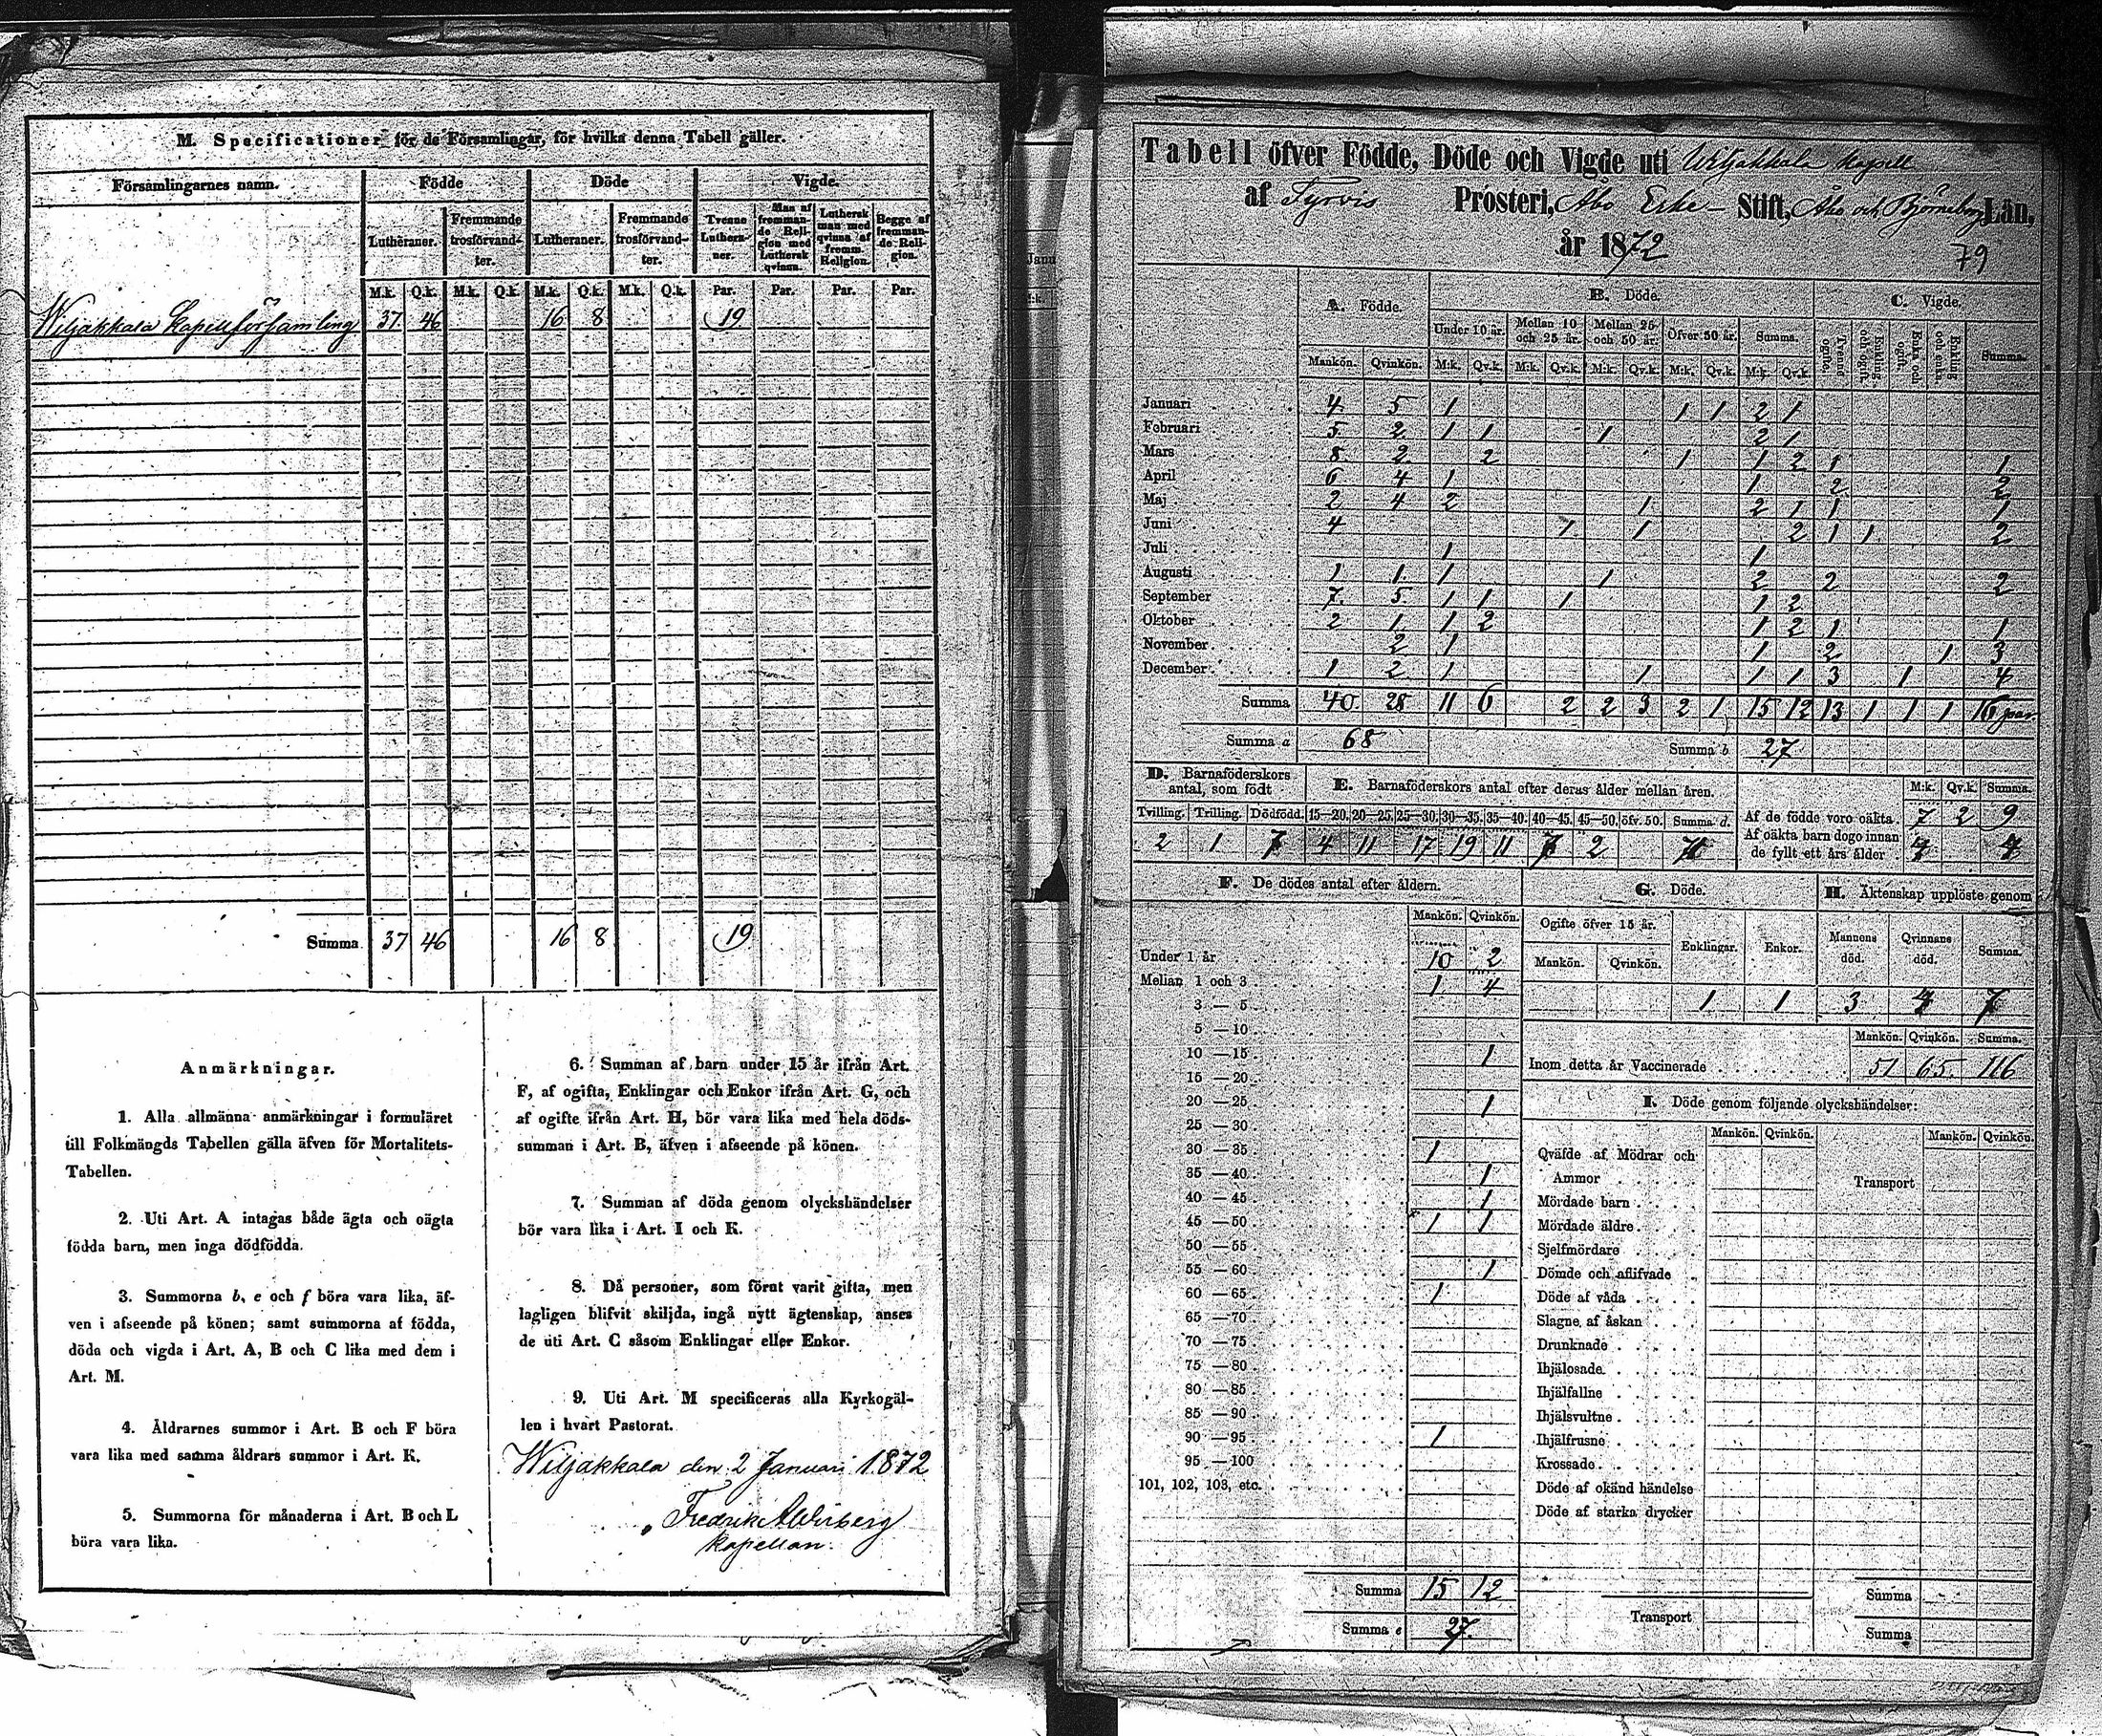 M. Specificationer för de Församlingar, för hvilka denna Tabell gäller.
Församlingarnes namn. Födde Döde Vigde.
Lutheraner. Fremmande trosförvandter. Lutheraner. Fremmande trosförvandter. Tvenne Lutheraner. Man af fremmande Religion med Luthersk qvinna. Luthersk man med qvinna af fremm. Religion. Begge af fremmande Religion.
M.k. Q.k. M.k. Q.k. M.k. Q.k. M.k. Q.k. Par. Par. Par. Par.
Wiljakkala Kapellförsamling 37 46 16 8 19
Summa. 37 46 16 8 19
Anmärkningar.
1. Alla allmänna anmärkningar i formuläret
till Folkmängds Tabellen gälla äfven för Mortalitets-
Tabellen.
2. Uti Art. A intagas både ägta och oägta
födda barn, men inga dödfödda.
3. Summorna b, e och f böra vara lika, äf-
ven i afseende på könen; samt summorna af födda,
döda och vigda i Art. A, B och C lika med dem i
Art. M.
4. Åldrarnes summor i Art. B och F böra
vara lika med samma åldrars summor i Art. K.
5. Summorna för månaderna i Art. B och L
böra vara lika.
6. Summan af barn under 15 år ifrån Art.
F, af ogifta, Enklingar och Enkor ifrån Art. G, och
af ogifte ifrån Art. H, bör vara lika med hela döds-
summan i Art. B, äfven i afseende på könen.
7. Summan af döda genom olyckshändelser
bör vara lika i Art. I och K.
8. Då personer, som förut varit gifta, men
lagligen blifvit skiljda, ingå nytt ägtenskap, anses
de uti Art. C såsom Enklingar eller Enkor.
9. Uti Art. M specificeras alla Kyrkogäl-
len i hvart Pastorat.
Wiljakkala den 2 Januari 1872
Fredrik
Kapellan.
Tabell öfver Födde, Döde och Vigde uti Wiljakkala Kapell
af Tyrvis Prosteri, Åbo Erke- Stift, Åbo och Björneborgs Län,
år 1872
79
A. Födde. B. Döde. C. Vigde.
Under 10 år. Mellan 10 och 25 år. Mellan 25 och 50 år. Öfver 50 år. Summa. Tvenne ogifte. Enkling och ogift. Enka och ogift. Enkling och enka. Summa.
Mankön. Qvinkön. M:k. Qv.k. M:k. Qv.k. M:k. Qv.k. M:k. Qv.k. M:k. Qv.k.
Januari 4 5 1 1 1 2 1
Februari 5 2 1 1 1 2 1
Mars 8 2 2 1 1 2 1 1
April 6 4 1 1 2 2
Maj 2 4 2 1 2 1 1 1
Juni 4 1 1 2 1 1 2
Juli 1 1
Augusti 1 1 1 1 2 2 2
September 7 5 1 1 1 1 2
Oktober 2 1 1 2 1 2 1 1
November 2 1 1 2 1 3
December 1 2 1 1 1 1 3 1 4
Summa 40 28 11 6 2 2 3 2 1 15 12 13 1 1 1 16 par
Summa a 68 Summa b 27
D. Barnaföderskors antal, som födt
Tvilling. Trilling. Dödfödd.
2 1 7
E. Barnaföderskors antal efter deras ålder mellan åren.
15—20. 20—25. 25—30. 30—35. 35—40. 40—45. 45—50. öfv. 50. Summa d.
4 11 17 19 11 7 2 71
M:k. Qv.k. Summa.
Af de födde voro oäkta. 7 2 9
Af oäkta barn dogo innan
de fyllt ett års ålder 4 4
F. De dödes antal efter åldern.
Mankön. Qvinkön.
Under 1 år 10 2
Mellan 1 och 3 1 4
3 — 5
5 — 10
10 — 15 1
15 — 20
20 — 25 1
25 — 30
30 — 35 1
35 — 40 1
40 — 45 1
45 — 50 1 1
50 — 55
55 — 60 1
60 — 65 1
65 — 70
70 — 75
75 — 80
80 — 85
85 — 90
90 — 95 1
95 — 100
101, 102, 103, etc.
Summa 15 12
Summa e 27
G. Döde.
Ogifte öfver 15 år. Enklingar. Enkor.
Mankön. Qvinkön.
1 1
H. Äktenskap upplöste genom
Mannens död. Qvinnans död. Summa.
3 4 7
Mankön. Qvinkön. Summa.
Inom detta år Vaccinerade 51 65 116
I. Döde genom följande olyckshändelser:
Mankön. Qvinkön. Mankön. Qvinkön.
Qväfde af Mödrar och
Ammor
Mördade barn
Mördade äldre
Sjelfmördare
Dömde och aflifvade
Döde af våda
Slagne af åskan
Drunknade
Ihjälosade
Ihjälfallne
Ihjälsvultne
Ihjälfrusne
Krossade
Döde af okänd händelse
Döde af starka drycker
Transport
Transport
Summa
Summa